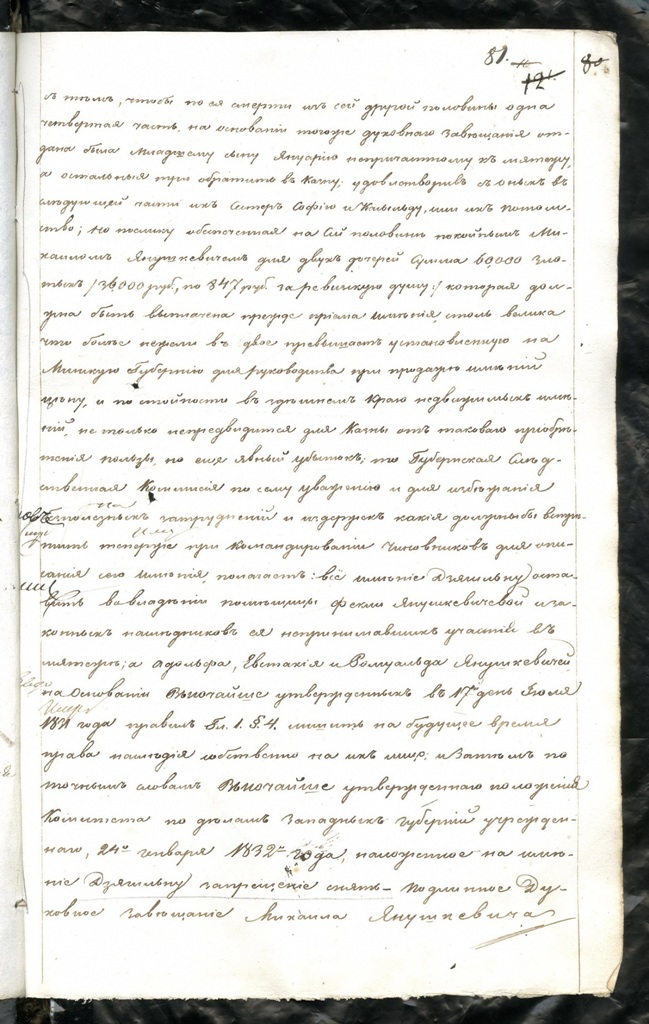 81. 12 80
съ тѣмъ, чтобы по ея смерти изъ сей другой половины одна
четвертая часть, на основаніи тогоже духовнаго завѣщанія от-
дана была младшему сыну Януарію непричастному къ мятежу,
а остальныя три обратить въ казну; удовлетворивъ съ оныхъ въ
слѣдующей части ихъ сестеръ Софію и или ихъ потом-
ство; но поелику обезпеченная на сей половинѣ покойнымъ Ми-
хаиломъ Янушкевичемъ для двухъ дочерей сумма 60,000 зло-
тыхъ /: 36,000 руб, по 847 руб за ревижскую душу :/ которая дол-
жна быть выплачена прежде пріема имѣнія, столь велика
что болѣе нежели въ двое превышаетъ установленную на
Минскую Губернію для руководства при продажѣ имѣній
цѣну, и по стойности въ здѣшнемъ краю недвижимыхъ имѣ-
ній, не только непредвидится для казны отъ таковаго пріобрѣ-
тенія пользы, но еще явный убытокъ; то Губернская Слѣд-
ственная Коммисія по сему уваженію и для избѣжанія
безполезныхъ затрудненій и издержекъ какія должны бы всту-
пить теперже при командированіи чиновниковъ для опи-
санія сего имѣнія, полагаетъ: всё имѣніе Дзягильну оста-
вить во владѣніи помѣщицы Феклы Янушкевичевой и за-
конныхъ наслѣдниковъ ея непринимавшихъ участій въ
мятежѣ; а Адольфа, Евстахія и Ромуальда Янушкевичей
на основаніи Высочайше утвержденныхъ въ 17 день Іюля
1831 года правилъ Гл. 1. §. 4. лишить на будущее время
права наслѣдія собственно на ихъ лице; и затѣмъ по
точнымъ словамъ Высочайше утвержденнаго положенія
Комитета по дѣламъ Западныхъ губерній учрежден-
наго, 24го генваря 1832го года, наложенное на имѣ-
ніе Дзягильну запрещеніе снять. – Подлинное Ду-
ховное завѣщаніе Михаила Янушкевича